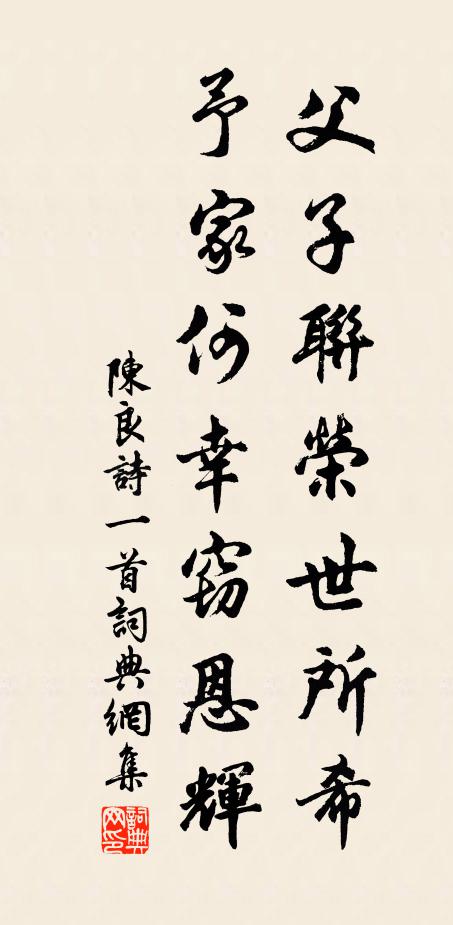 父子聯榮世所希
予家何幸窃恩輝
陳良詩一首詞典網集
詞典
网印